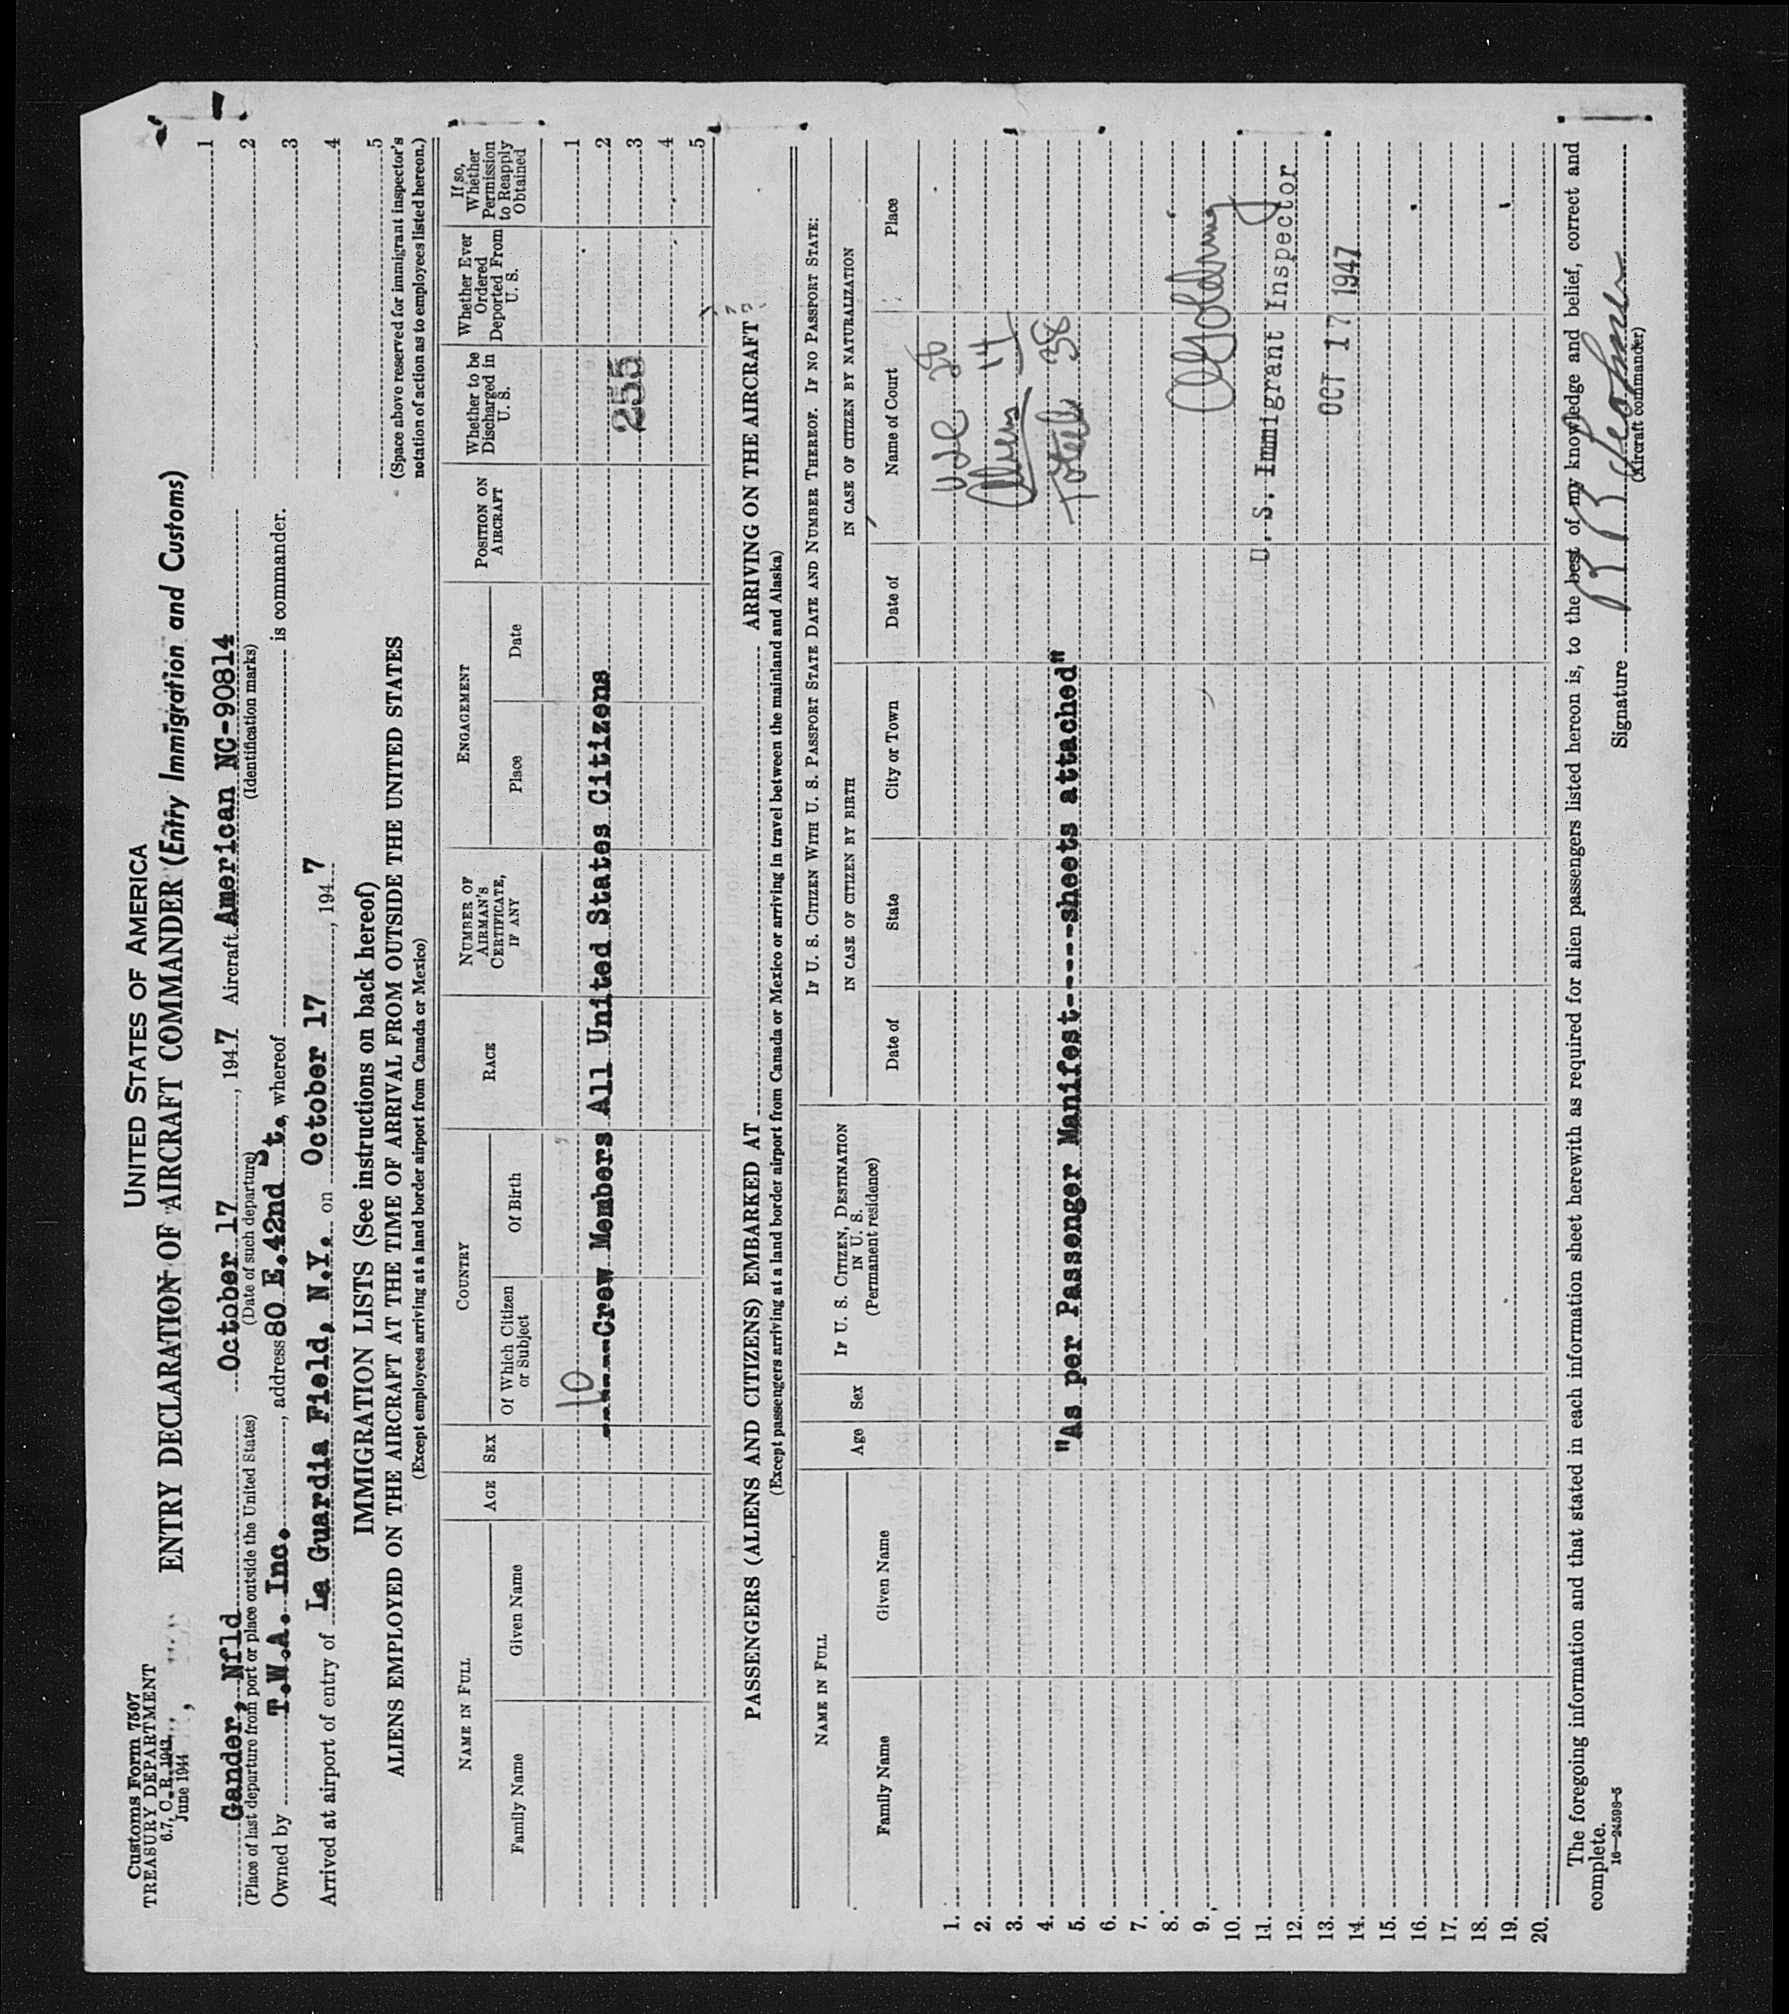 Customs Form 7507
TREASURY DEPARTMENT
6.7, C. R. 1943
June 1944
UNITED STATES OF AMERICA
ENTRY DECLARATION OF AIRCRAFT COMMANDER (Entry Immigration and Customs)
Gander, Nfld October 17, 1947 Aircraft American NC-90814
(Place of last departure from port or place outside the United States) (Date of such departure) (Identification marks)
Owned by T.W.A. Inc., address 80 E.42nd St., whereof is commander.
Arrived at airport of entry of La Guardia Field, N.Y. on October 17, 1947
1
2
3
4
5
(Space above reserved for immigrant inspector's
notation of action as to employees listed hereon.)
IMMIGRATION LISTS (See instructions on back hereof)
ALIENS EMPLOYED ON THE AIRCRAFT AT THE TIME OF ARRIVAL FROM OUTSIDE THE UNITED STATES
(Except employees arriving at a land border airport from Canada or Mexico)
NAME IN FULL
Family Name
Given Name
AGE
SEX
COUNTRY
Of Which Citizen or Subject
Of Birth
RACE
NUMBER OF AIRMAN'S CERTIFICATE, IF ANY
ENGAGEMENT
Place
Date
POSITION ON AIRCRAFT
Whether to be Discharged in U. S.
Whether Ever Ordered Deported From U. S.
If so, Whether Permission to Reapply Obtained
10
1
-----Crew Members All United States Citizens
2
255
3
4
5
PASSENGERS (ALIENS AND CITIZENS) EMBARKED AT ARRIVING ON THE AIRCRAFT
(Except passengers arriving at a land border airport from Canada or Mexico or arriving in travel between the mainland and Alaska)
NAME IN FULL
Family Name
Given Name
Age
Sex
IF U. S. CITIZEN, DESTINATION IN U. S.
(Permanent residence)
IF U. S. CITIZEN WITH U. S. PASSPORT STATE DATE AND NUMBER THEREOF. IF NO PASSPORT STATE:
IN CASE OF CITIZEN BY BIRTH
Date of
State
City or Town
IN CASE OF CITIZEN BY NATURALIZATION
Date of
Name of Court
Place
1.
2.
3.
4.
5.
6.
7.
8.
9.
10.
11.
12.
13.
14.
15.
16.
17.
18.
19.
20.
Aliens 14
Total 38
"As per Passenger Manifest-----sheets attached"
U. S. Immigrant Inspector
OCT 17 1947
The foregoing information and that stated in each information sheet herewith as required for alien passengers listed hereon is, to the best of my knowledge and belief, correct and
complete.
16—24598-5
Signature
(Aircraft commander)